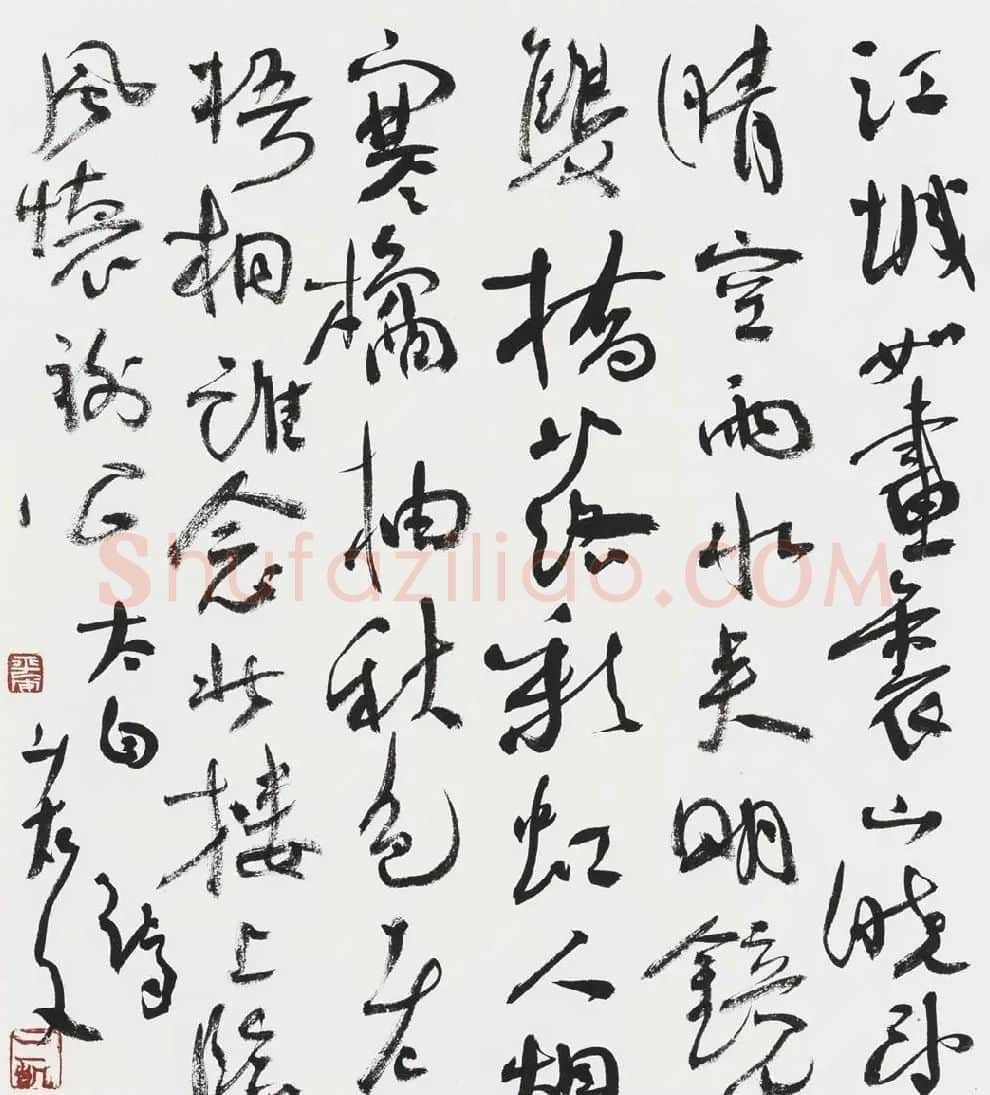 江城如畫裏山曉望
晴空兩水夾明鏡
雙橋落彩虹人烟
寒橘柚秋色老
梧桐誰念北樓上臨
風懷謝公太白詩
Shufaziliao.COM